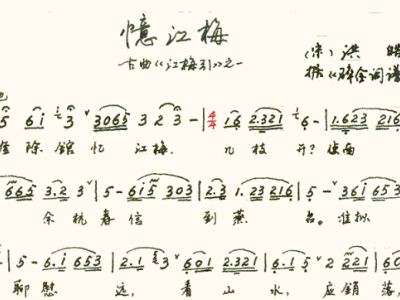 憶江梅
古曲《江梅引》之一
(宋) 洪皓
据《碎金词谱
5 6i 3 3065 3 2 3 - | 4/4 16 2.321 6 - | 1.623 216
除 館 忆 江 梅, 几 枝 开? 使 南
665 3.2 3 | 5 - 6i5 303 | 2.3 1.23 216 | 5 - 36i 653
余 杭 春 信 到 燕 台. 准 拟
| 5 - 6.i 653 | 2.1 3 6 - | 601 2.321 | 6.1 5 2 221 60
聊 慰 远, 看 山 水, 应 銷 落,